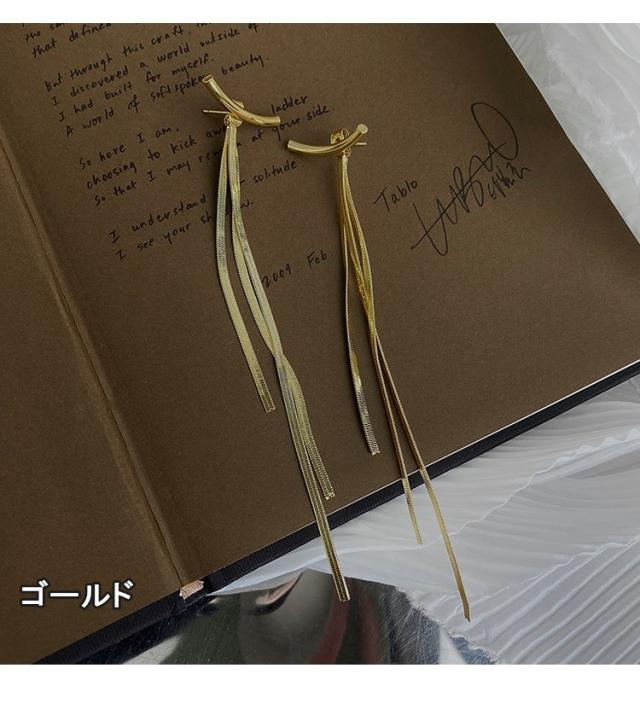 the sa
that defined
But through this craft, I
I discovered a world outside of
I had built for myself.
A world of soft spoken beauty.
So here I am,
choosing to kick away ladder
so that I may re at your side.
I understand solitude
I see your sh w.
2009. Feb
Tablo
ゴールド